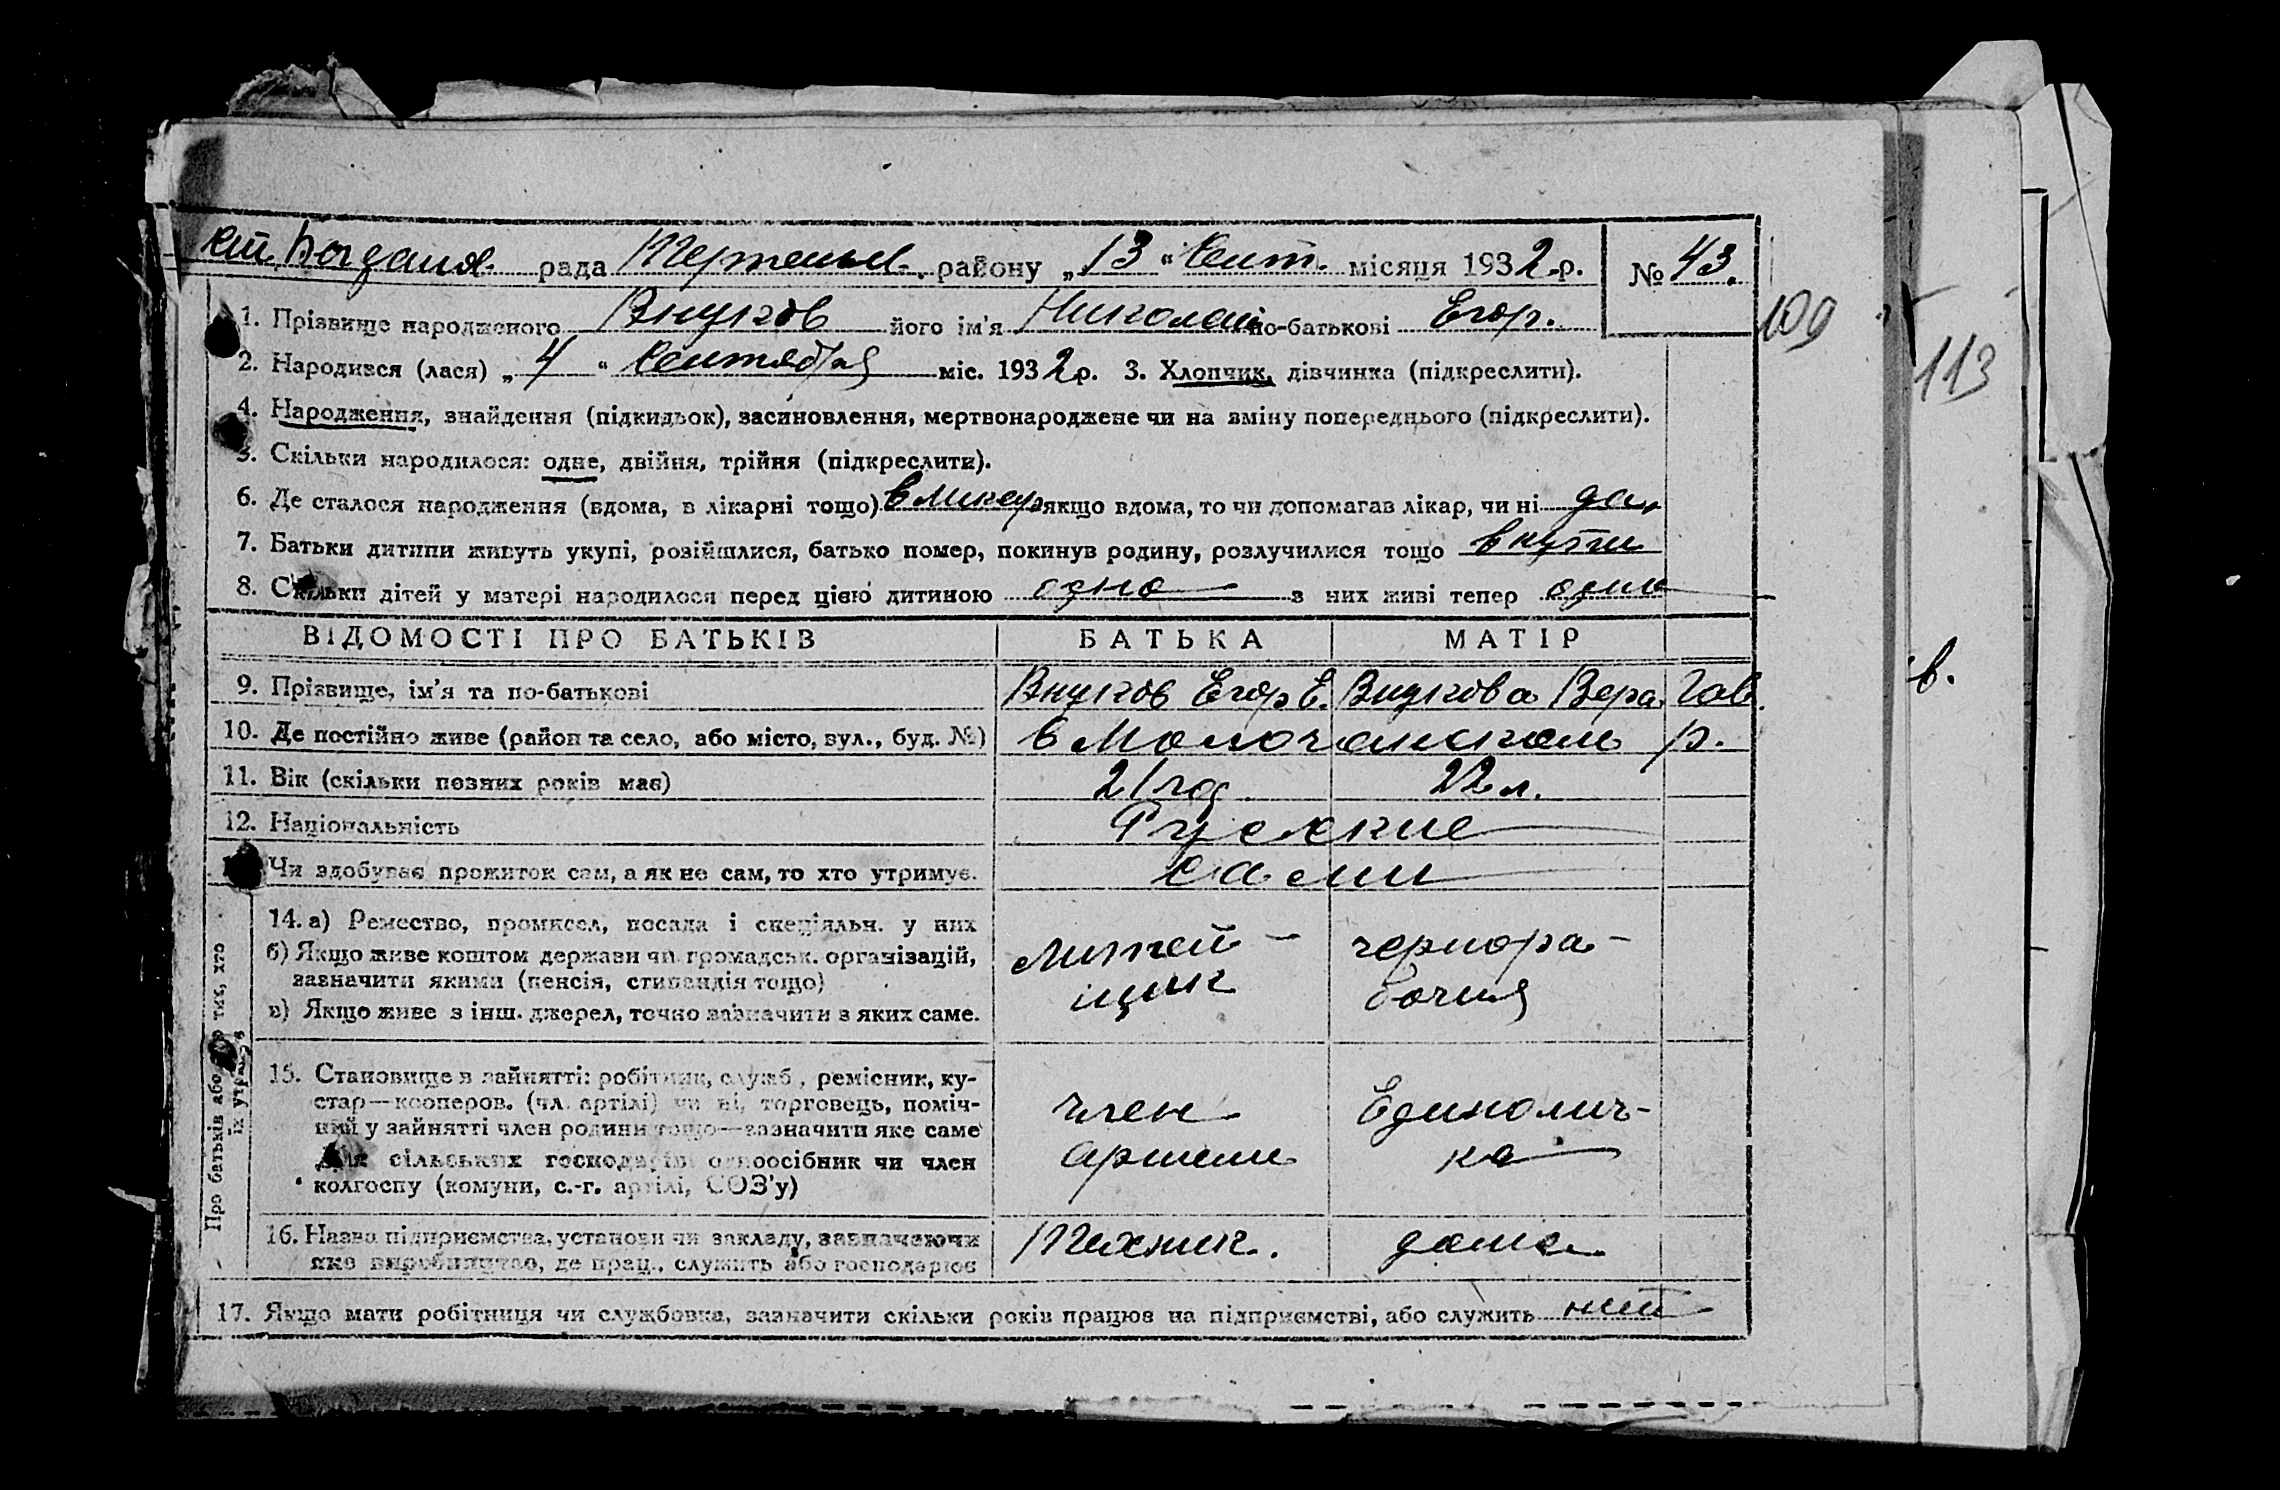 ст. Богдан. рада Терпеньев. району „13“ Сент. місяця 1932 р. № 43.
1. Прізвище народженого Внуков його ім'я Николай по-батькові Егор.
109
2. Народився (лася) „4“ Сентября міс. 1932 р. 3. Хлопчик, дівчинка (підкреслити).
113
4. Народження, знайдення (підкидьок), засиновлення, мертвонароджене чи на зміну попереднього (підкреслити).
5. Скільки народилося: одне, двійня, трійня (підкреслити).
6. Де сталося народження (вдома, в лікарні тощо) якщо вдома, то чи допомагав лікар, чи ні да,
7. Батьки дитини живуть укупі, розійшлися, батько помер, покинув родину, розлучилися тощо
8. Скільки дітей у матері народилося перед цією дитиною одно з них живі тепер один
ВІДОМОСТІ ПРО БАТЬКІВ БАТЬКА МАТІР
9. Прізвище, ім'я та по-батькові Внуков Егор Е. Внукова Вера Гав.
в.
10. Де постійно живе (район та село, або місто, вул., буд. №) в Молочанском р.
11. Вік (скільки повних років має) 21 год 22 л.
12. Національність Русские
Чи здобуває прожиток сам, а як не сам, то хто утримує. сами
14. а) Ремество, промисел, посада і спеціяльн. у них
б) Якщо живе коштом держави чи громадськ. організацій,
зазначити якими (пенсія, стипендія тощо)
в) Якщо живе з інш. джерел, точно зазначити з яких саме.
Литей-
щик
чернора-
бочия
Про батьків або про тих, хто
їх утримує
15. Становище в зайнятті: робітник, служб., ремісник, ку-
стар—кооперов. (чл. артілі) чи ні, торговець, поміч-
ний у зайнятті член родини тощо—зазначити яке саме
Для сільських господарів: одноосібник чи член
колгоспу (комуни, с.-г. артілі, СОЗ'у)
член
артели
Единолич-
ка
16. Назва підприємства, установи чи закладу, зазначаючи
яке виробництво, де прац., служить або господарює
Техник. дома
17. Якщо мати робітниця чи службовка, зазначити скільки років працює на підприємстві, або служить нет